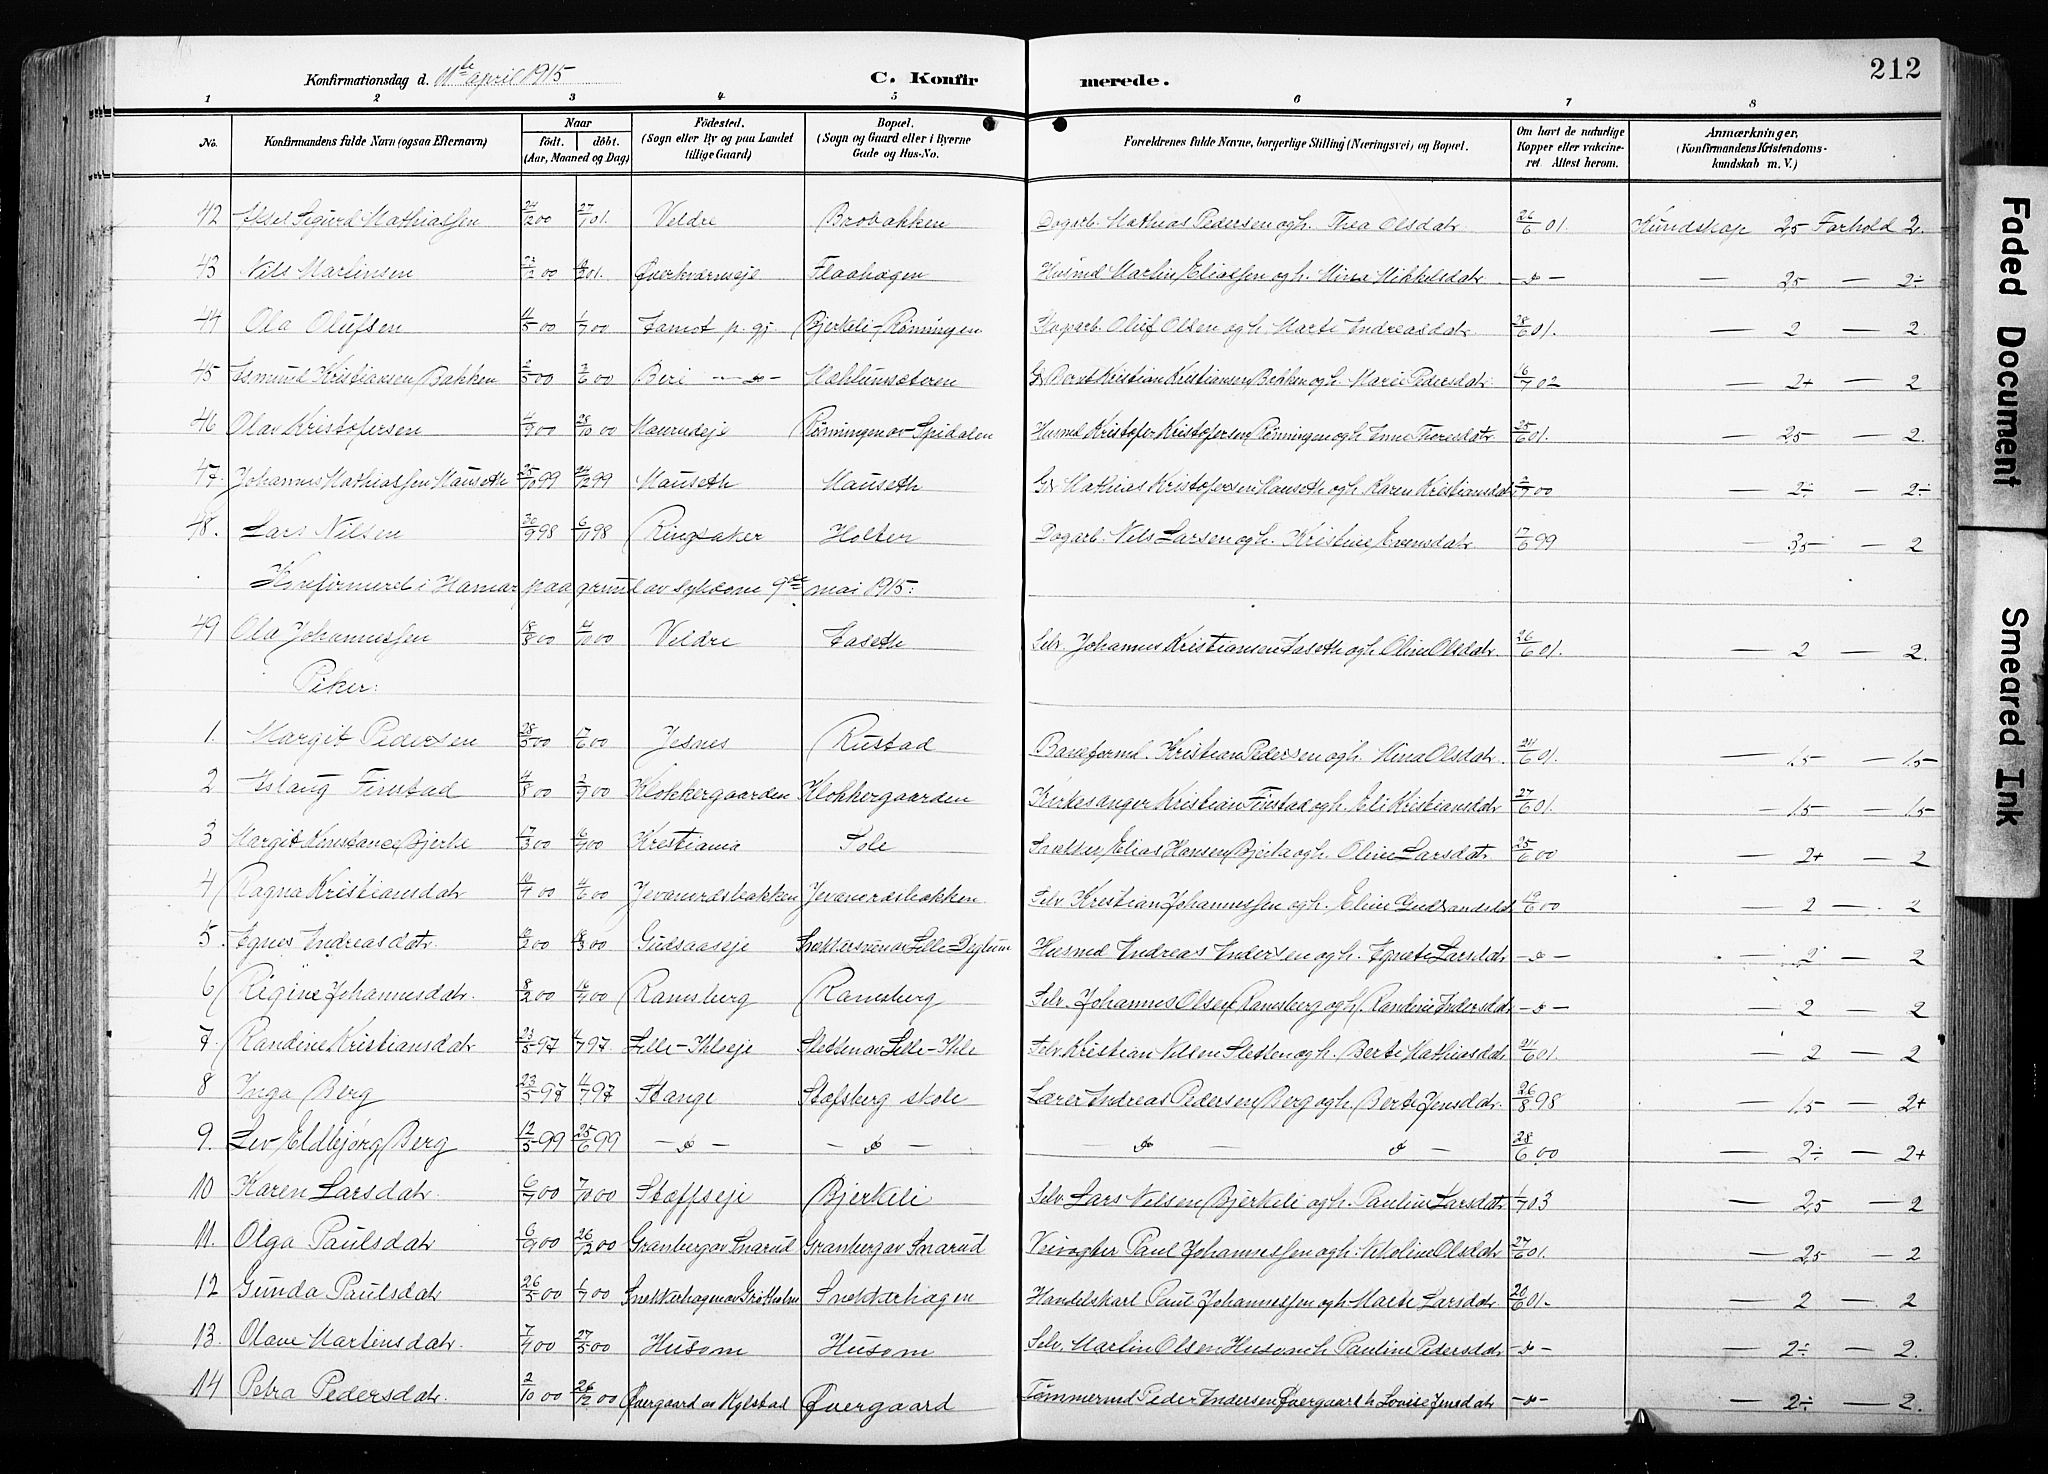 Konfirmationsdag d. 11te april 1915 C. Konfirmerede. 212
1 2 3 4 5 6 7 8
No. Konfirmandens fulde Navn (ogsaa Efternavn) Naar født. døbt. (Aar, Maaned og Dag) Fødested. (Sogn eller By og paa Landet tillige Gaard) Bopæl. (Sogn og Gaard eller i Byerne Gade og Hus-No. Forældrenes fulde Navne, borgerlige Stilling (Næringsvei) og Bopæl. Om havt de naturlige Kopper eller vakcineret Attest herom. Anmærkninger, (Konfirmandens Kristendomskundskab m. V.)
42 Aksel Sigurd Mathiassen 24/12 00 27/1 01. Veldre Brobakken Dagarb. Mathias Pedersen og h. Thea Olsdatr 26/6 01. Kundskap 2,5 Forhold 2.
43 Nils Martinsen 00 01. Øverkværneeje Flaahagen Husmd Martin Eliassen og h. Mina Mikkelsdatr — 2,5 — 2÷
44 Ola Olufsen 11/5 00 1/7 00 Aamot p. gj. Bjerkeli-Rønningen Dagarb. Oluf Olsen og h. Marte Andreasdatr 28/6 01. — 2 — 2.
45 Asmund Kristiansen Bakken 2/5 00 3/6 00 Beri Mæhlumsæteren Bernt Kristian Kristiansen Bakken og h. Marie Pedersdatr. 16/7 02 — 2+ — 2
46 Olav Kristofersen 4/9 00 28/10 00 Maurudeje Rønningen av Spidalen Husmd Kristofer Kristofersen Rønningen og h. Anne Thoresdatr 25/6 01. — 2,5 — 2.
47. Johannes Mathiassen Mauseth 25/10 99 24/12 99 Mauseth Mauseth Mathias Kristofersen Mauseth og h. Karen Kristiansdatr 2/7 00 — 2÷ — 2÷
48. Lars Nilsen 30/9 98 6/11 98 Ringsaker Holter Dagarb. Nils Larsen og h. Kristine Evensdatr 17/6 99 — 3,5 — 2
Konfirmeret i Hamar paa grund av sykdom 9de mai 1915:
49 Ola Johannessen 18/8 00 4/10 00 Veldre Aaseth Selv. Johannes Kristiansen Aaseth og h. Oline Olsdatr. 26/6 01. — 2 — 2.
Piker:
1. Margit Pedersen 28/5 00 17/6 00 Jesnes Rustad Baneformd. Kristian Pedersen og h. Mina Olsdatr. 24/6 01. — 1,5 — 1,5
2 Aslaug Finstad 4/8 00 2/9 00 Klokkergaarden Klokkergaarden Kirkesanger Kristian Finstad og h. Eli Kristiansdatr 27/6 01. — 1,5 — 1,5
3 Margit Konstance Bjerke 17/3 00 16/4 00 Kristiania Sole Elias Hansen Bjerke og h. Oline Larsdatr 25/6 00 — 2+ — 2
4 Ragna Kristiansdatr 10/4 00 4/6 00 Jevaneræsbakken Jevaneræsbakken Selv Kristian Johannessen og h. Eline Gudbrandsdatr 19/6 00 — 2 — 2
5. Agnes Andreasdatr. 10/2 00 18/3 00 Gudsaaseje Snekkersveen av Lille-Deglum Husmd Andreas Andersen og h. Agnete Larsdatr — 2 — 2
6 Ragine Johannesdatr. 8/2 00 16/4 00 Ramsberg Ramsberg Selv. Johannes Olsen Ramsberg og h. Randine Andersdatr — 2 — 2
7. Randine Kristiansdatr 23/5 97 4/7 97 Lille-Ihleeje Sletten av Lille-Ihle Selv. Kristian Nilsen Sletten og h. Berte Mathiasdatr 24/6 01. — 2 — 2
8 Inga Berg 23/5 97 11/7 97 Stange Stafsberg skole Lærer Andreas Pedersen Berg og h. Berte Jensdatr. 26/8 98 — 1,5 — 2+
9. Liv Eldbjørg Berg 12/5 99 25/6 99 28/6 00 — 2÷ — 2+
10 Karen Larsdatr. 6/7 00 7/10 00 Staffseje Bjerkeli Selv. Lars Nilsen Bjerkeli og h. Pauline Larsdatr 1/7 03 — 2,5 — 2
11. Olga Paulsdatr 6/9 00 26/12 00 Granberg av Snarud Granberg av Snarud Veivogter Paul Johannessen og h. Oline Olsdatr 27/6 01. — 2,5 — 2
12 Gunda Paulsdatr 26/5 00 1/7 00 Snekkerhagen av Grøtholm Snekkerhagen Handelskarl Paul Johannessen og h. Marte Larsdatr 26/6 01. — 2 — 2
13. Olave Martinsdatr. 7/4 00 27/5 00 Husom Husom Selv. Martin Olsen Husom h. Pauline Pedersdatr — 2÷ — 2.
14 Petra Pedersdatr. 2/10 00 26/12 00 Øvergaard av Kylstad Øvergaard Tømmermd Peder Andersen Øvergaard h Lovise Jensdatr — 2÷ — 2.
Faded Document
Smeared Ink